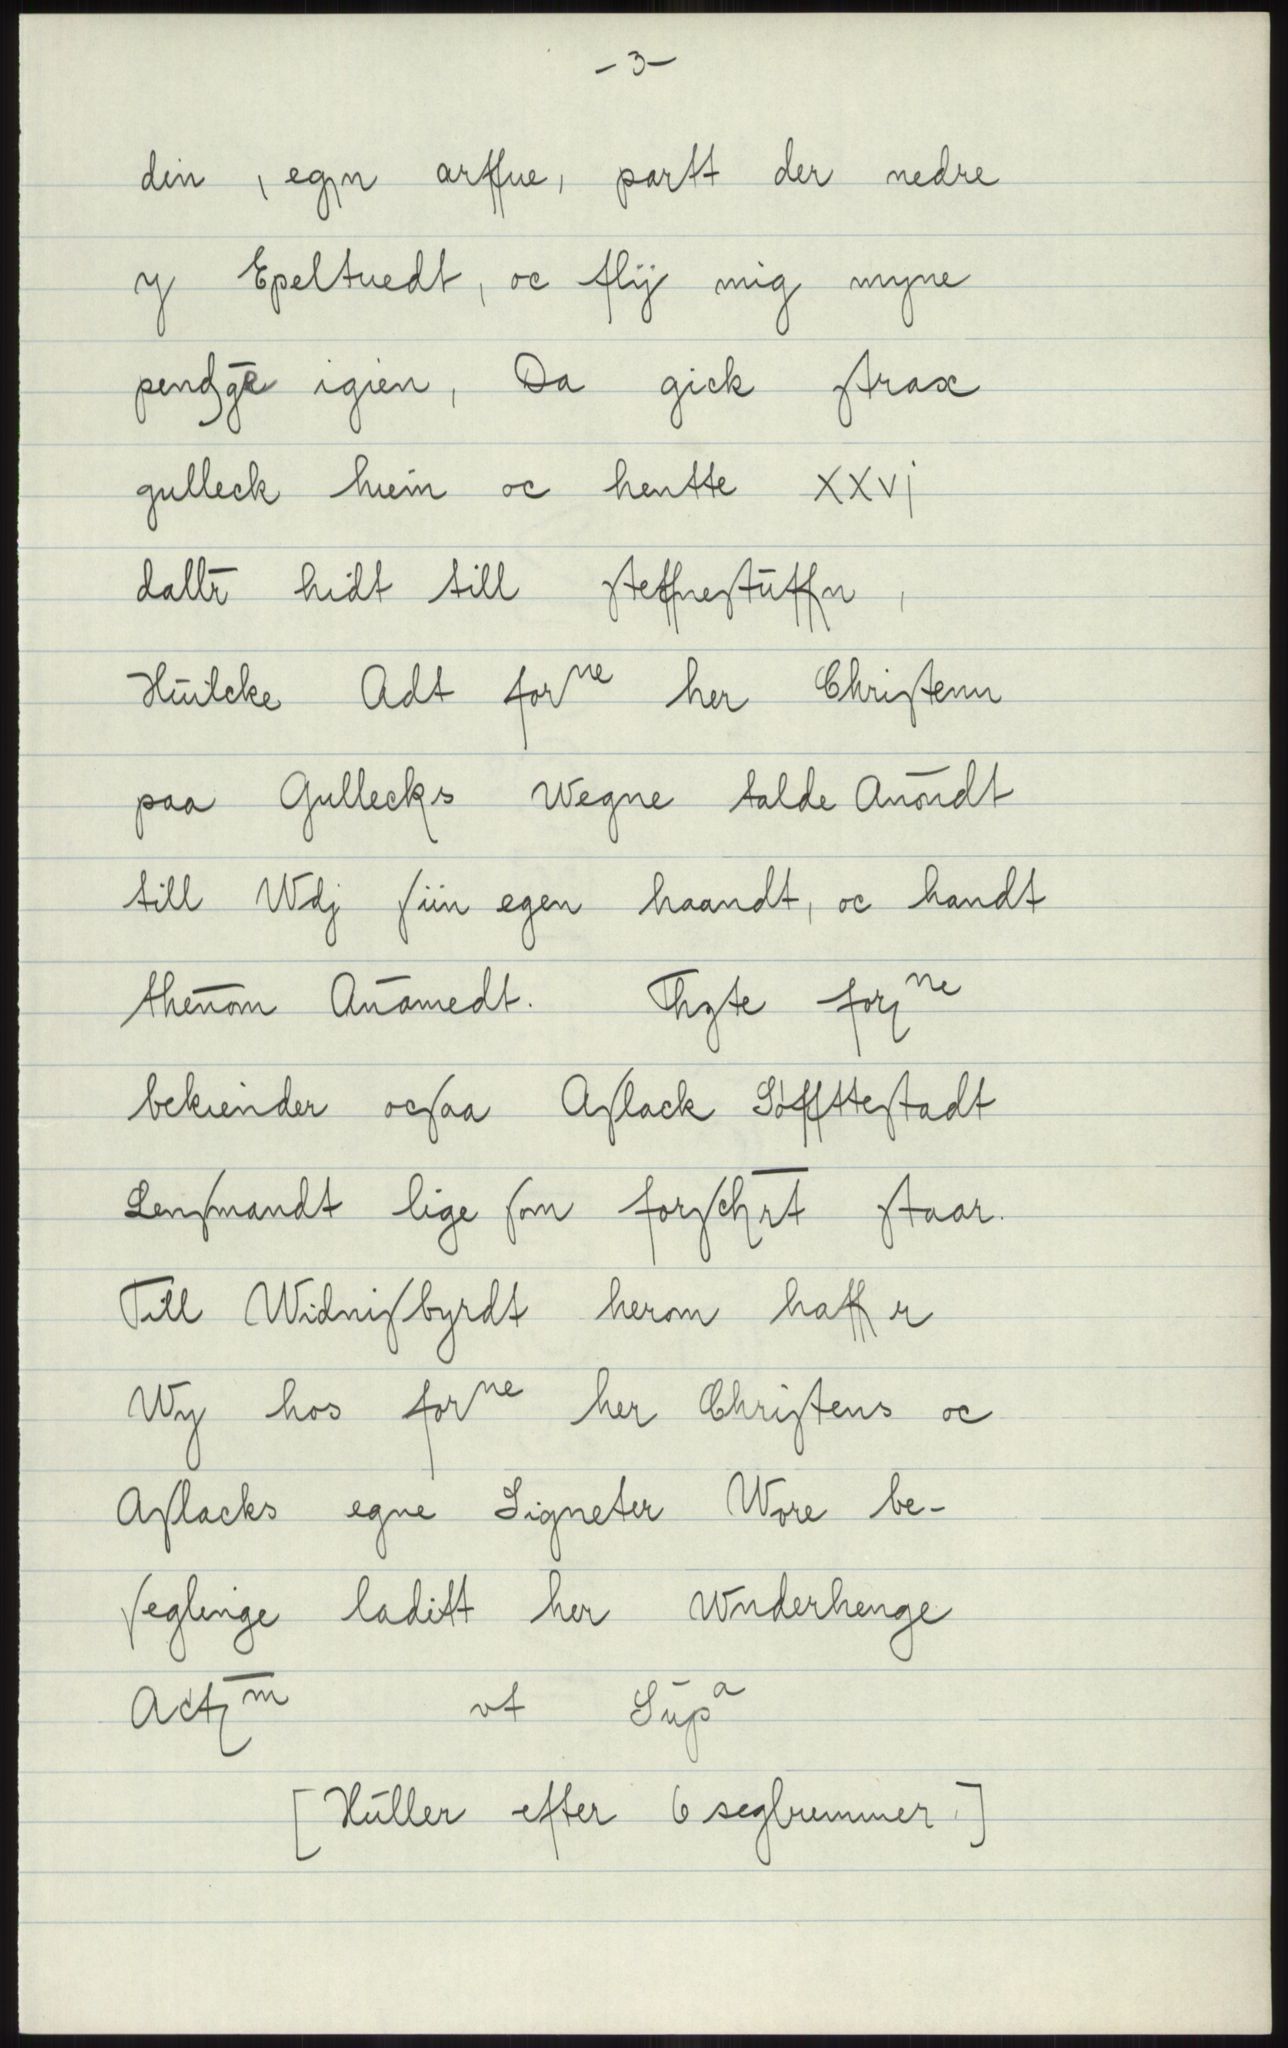 - 3 -
din, egn arffue, partt der nedre
y Epeltuedt, oc flÿ mig myne
igien, Da gick strax
gulleck hiem oc hentte XXVj
dallr̄ hidt till steffnestuffn,
Huilcke Adt forne her Christenn
paa Gullecks Wegne talde Anōndt
till Wdj siin egen haandt, oc handt
thenom Anāmedt. Thyte forne
bekiender ocsaa Aslack Søfftestadt
Lensmandt lige som forschr̄t staar.
Till Widnisbyrdt herom haffr
Wy hos forne her Christens oc
Aslacks egne Signeter Wore be-
seglinge laditt her Wnderhenge
vt Supa
[Huller efter 6 seglremmer.]